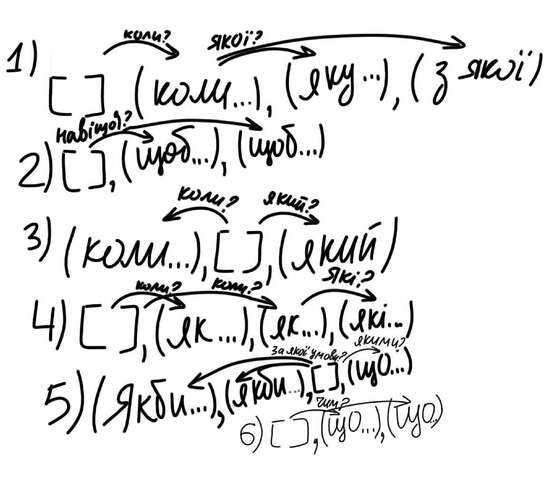 коли? якої?
1) [ ] (коли...), (яку...), (з якої)
навіщо?
2) [ ], (щоб...), (щоб...)
коли? який?
3) (коли...), [ ], (який)
коли? коли? які?
4) [ ], (як...), (як...), (які...)
за якої умови? якими?
5) (Якби...), (якби...), [ ], (що...)
чим?
6) [ ], (що...), (що.)